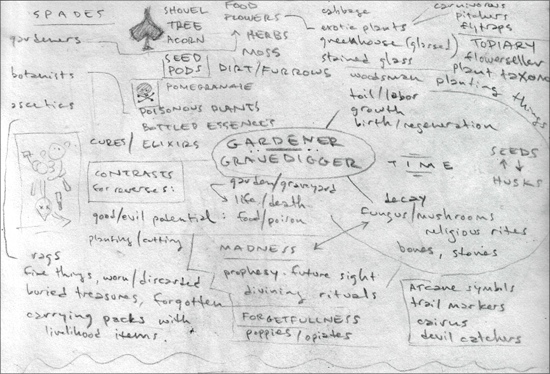 SPADES
gardeners
botanists
ascetics
SHOVEL
TREE
ACORN
FOOD
FLOWERS
HERBS
MOSS
SEED
PODS
DIRT/FURROWS
POMEGRANATE
POISONOUS PLANTS
BOTTLED ESSENCES
CURES/ELIXIRS
cabbage
exotic plants
carnivorous
pitchers
flytraps
greenhouse (glassed)
stained glass
woodsman
TOPIARY
flowerseller
plant taxono
planting things
toil/labor
growth
birth/regeneration
GARDENER
GRAVEDIGGER
TIME
SEEDS
HUSKS
CONTRASTS
for reverses:
garden/graveyard
life/death
good/evil potential: food/poison
planting/cutting
decay
fungus/mushrooms
religious rites
bones, stones
MADNESS
prophesy - future sight
divining rituals
FORGETFULNESS
poppies/opiates
rags
fine things, worn/discarded
buried treasures, forgotten
carrying packs with
livlihood items.
Arcane symbls
trail markers
cairns
devil catchers